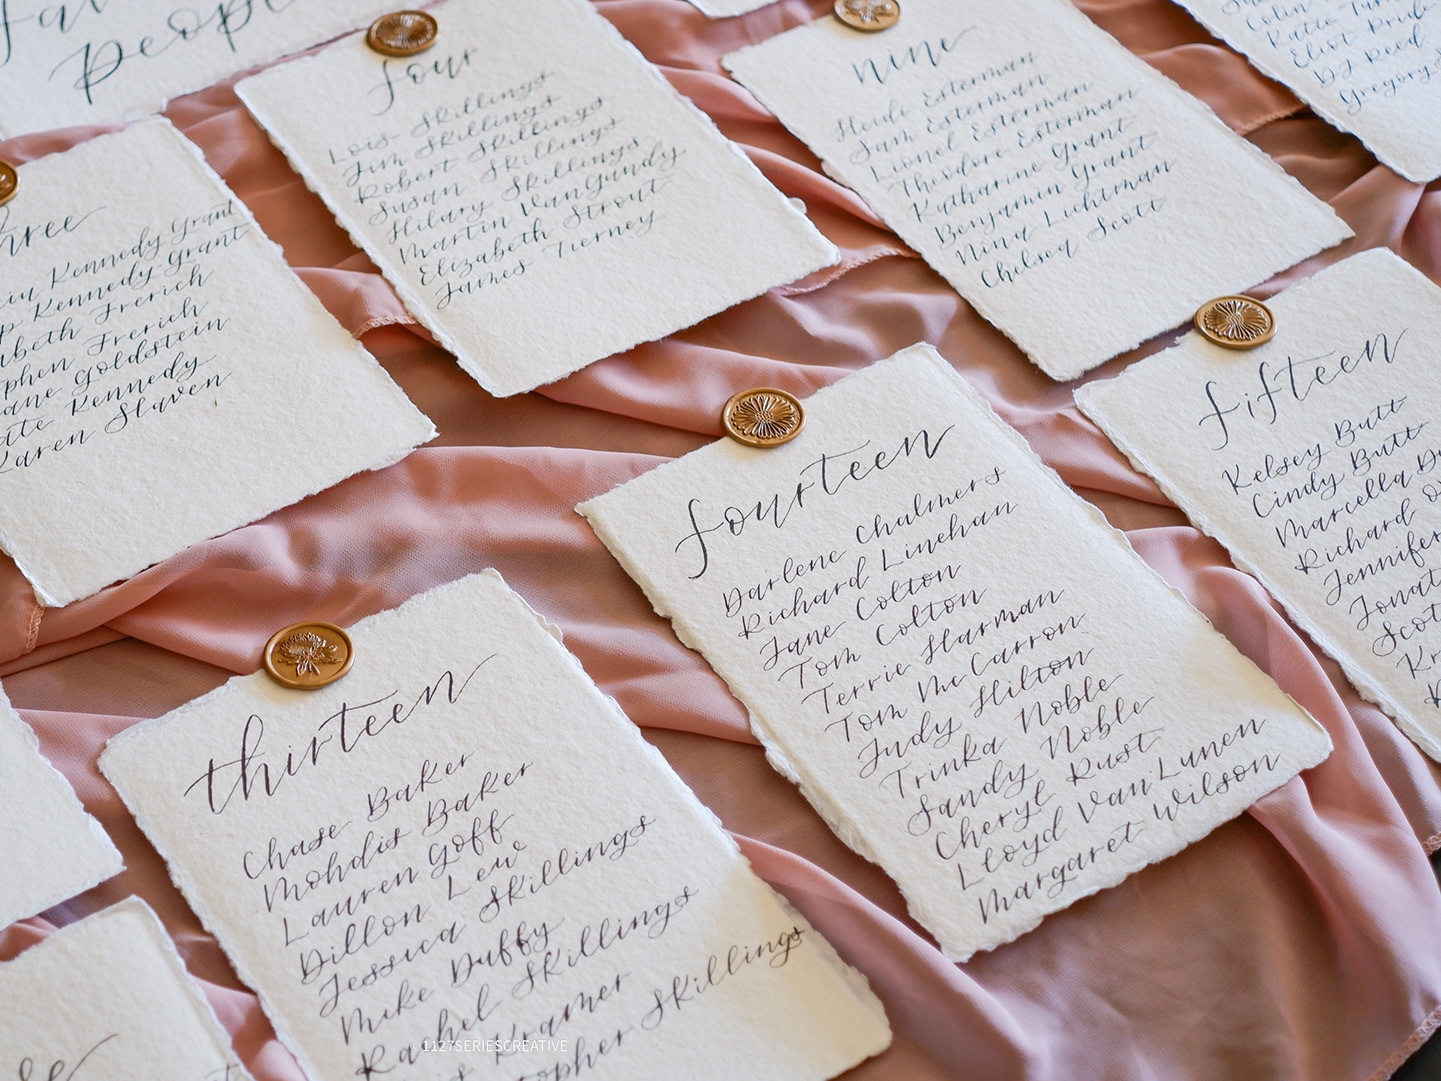 people
four
Lois Skillings
Jim Skillings
Robert Skillings
Susan Skillings
Hilary Skillings
Martin VanGundy
Elizabeth Strout
James Tierney
nine
Heidi Esterman
Sam Esterman
Lionel Esterman
Theodore Esterman
Katharine Grant
Benjamin Grant
Nina Lichtman
Chelsea Scott
Colin
Eliot Prude
DJ Reed
Gregory
Kennedy Grant
Kennedy Grant
Frerich
Frerich
Goldstein
Kennedy
Karen Slaven
fourteen
Darlene Chalmers
Richard Linehan
Jane Colton
Tom Colton
Terrie Harman
Tom McCarron
Judy Hilton
Trinka Noble
Sandy Noble
Cheryl Rust
Lloyd Van Lunen
Margaret Wilson
fifteen
Kelsey Butt
Cindy Butt
Marcella
Richard
Jennifer
thirteen
Chase Baker
Mohdis Baker
Lauren Goff
Dillon Lew
Jessica Skillings
Mike Duffy
Rachel Skillings
Kramer
Skillings
©1127SERIESCREATIVE